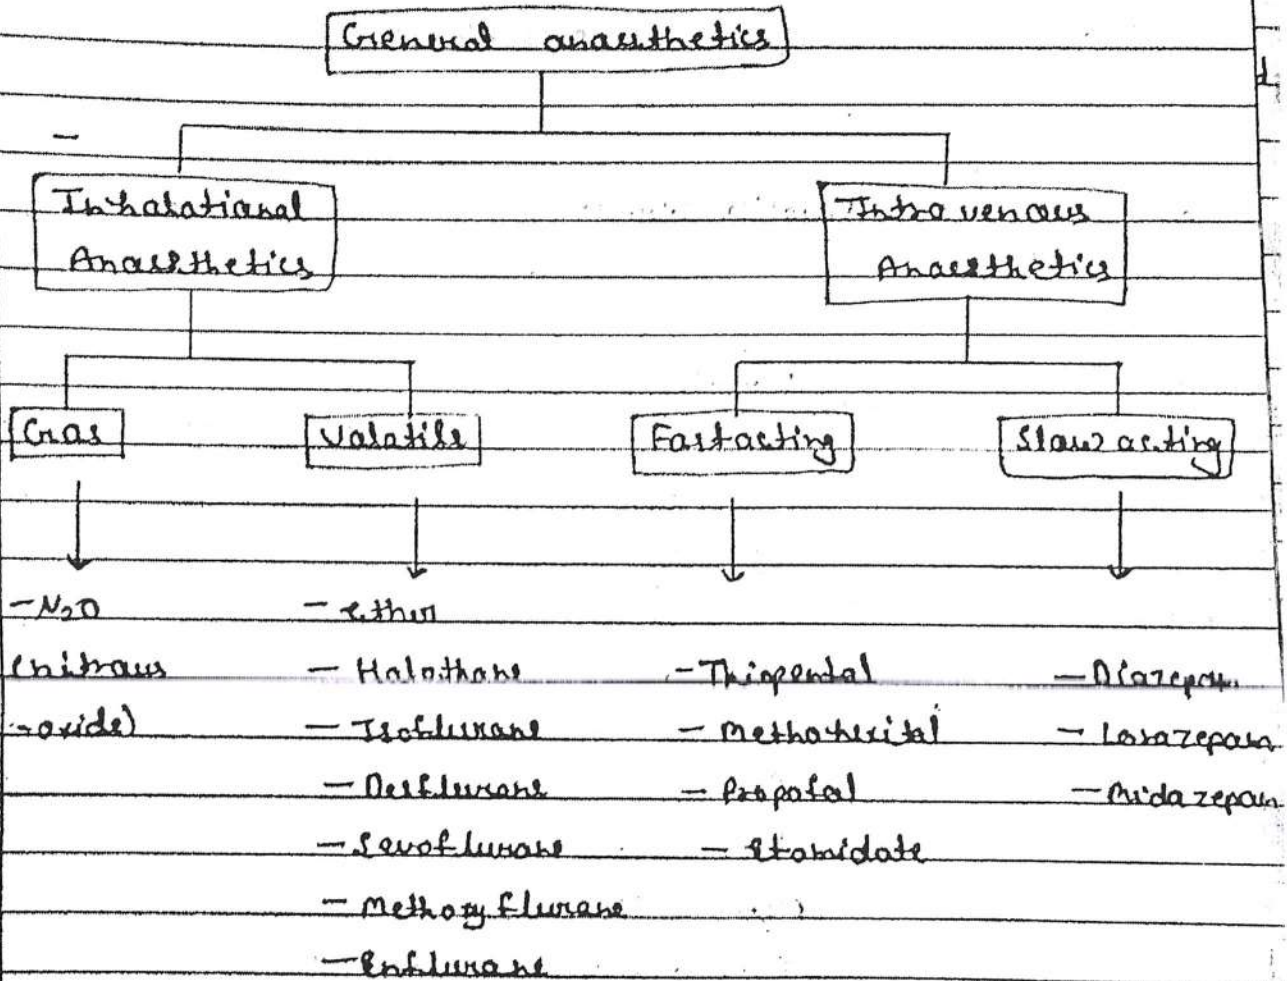 General anaesthetics
Inhalational
Anaesthetics
Intravenous
Anaesthetics
Gas
Volatile
Fast acting
Slow acting
- N₂O
(nitrous
-oxide)
- ether
- Halothane
- Isoflurane
- Desflurane
- Sevoflurane
- Methoxyflurane
- Enflurane
- Thiopental
- Methohexital
- Propofol
- Etomidate
- Diazepam
- Lorazepam
- Midazepam